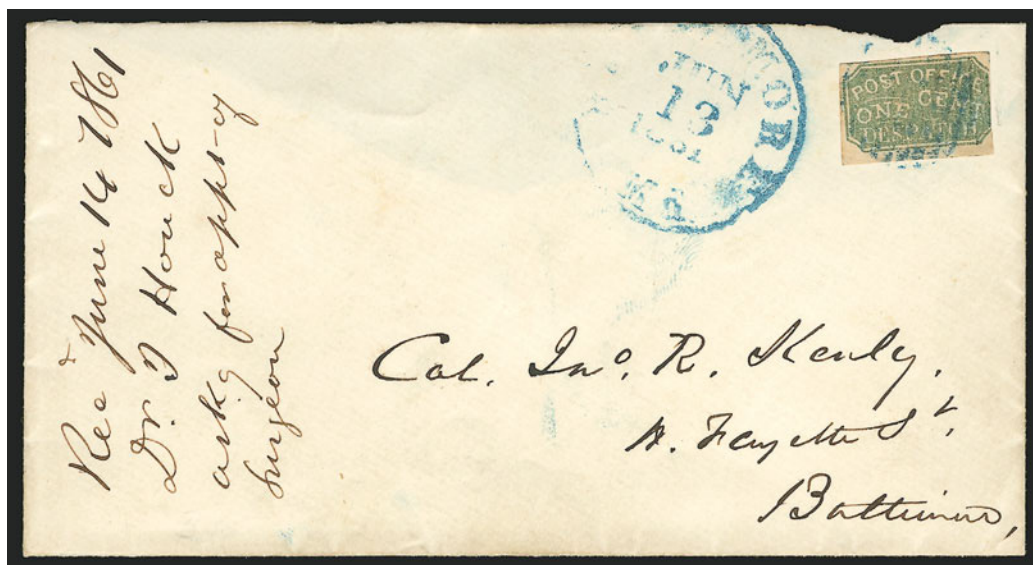 Recd June 14 1861
Dr. J Houck
ask,g for app,-y
Surgeon
MORE
JUN
13
1861
Md
POST OFFICE
ONE CENT
DESPATCH
Col. Jno. R. Kenly.
St,
Baltimore,